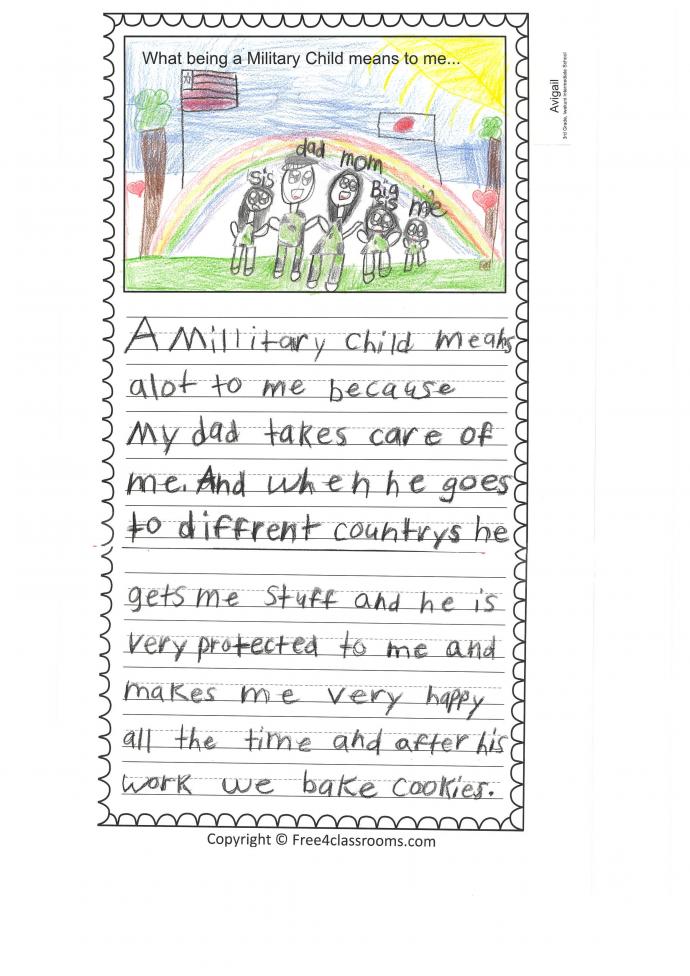 What being a Military Child means to me...
Avigail
3rd Grade, Iwakuni Intermediate School
dad mom
sis
Big
sis
me
A Millitary Child means
alot to me because
My dad takes care of
me. And when he goes
to diffrent countrys he
gets me stuff and he is
very protected to me and
makes me very happy
all the time and after his
work we bake cookies.
Copyright © Free4classrooms.com